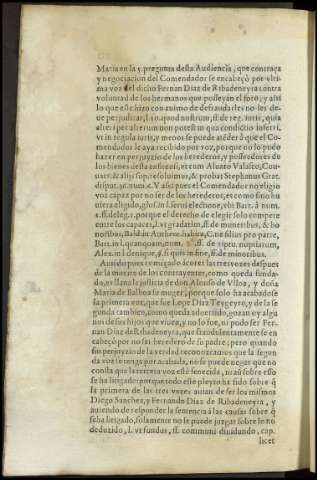 Maria en la 5. pregunta desta Audiencia, que contraça
y negociacion del Comendador se encabeçò por vlti-
ma voz del dicho Fernan Diaz de Ribadeneyra contra
voluntad de los hermanos que posseyan el foro, y assi
lo que este hizo con animo de defraudarles no les de-
ue perjudicar, l. id quod nostrum, ff. de reg. iuris, quia
alteri per alterum non potest iniqua condictio inferri,
vt in regula iuris, y menos se puede atēder à que el Co-
mendador le aya recibido por voz, porque no lo pudo
hazer en perjuyzio de los herederos, y posseedores de
los bienes desta enfiteusi, vt cum Aluaro Valasco, Cou-
uarr. & alijs sup. resoluimus, & probat Stephanus Grat.
disput. 30. num. 2. Y assi pues el Comendador no eligio
voz capaz por no ser de los herederos, es como sino hu-
uiera eligido, glos. in l. serui electione, vbi Bart. à num.
2. ff. de leg. 1. porque el derecho de elegir solo compete
entre los capaces, l. vt gradatim, ff. de muneribus, & ho
noribus, Bald. in Authent. habita, C. ne filius pro patre,
Bart. in l. quanquam, num. 2. ff. de ritu nuptiarum,
Alex. in l. denique, §. si quis in fine, ff. de minoribus.
Auiendo pues començado à correr las tres vezes despues
de la muerte de los contrayentes, como queda funda-
do, es llana la justicia de don Alonso de Vlloa, y doña
Maria de Balboa su muger, porque solo ha acabado se
la primera voz, que fue Lope Diaz Teygeyro, y de la se
gunda tambien, como queda aduertido, gozan ey algu
nos de sus hijos que viuen, y no lo fue, ni pudo ser Fer-
nan Diaz de Ribadeneyra, que fraudulentamente se en
cabeçò por no ser heredero de su padre; pero quando
sin perjuyzio de la verdad reconozcamos que la segun
da voz se tenga por acabada, no se puede negar que no
consta que la tercera voz estè fenecida, ni aũ sobre esso
se ha litigado porque todo este pleyto ha sido sobre q̃
la primera de las tres vezes auian de ser los mismos
Diego Sanchez, y Fernando Diaz de Ribadeneyra, y
auiendo de responder la sentencia à las causas sobre q̃
se ha litigado, solamente no se puede juzgar sobre lo no
deduzido, l. vt fundus, ff. communi diuidundo, cap.
licet